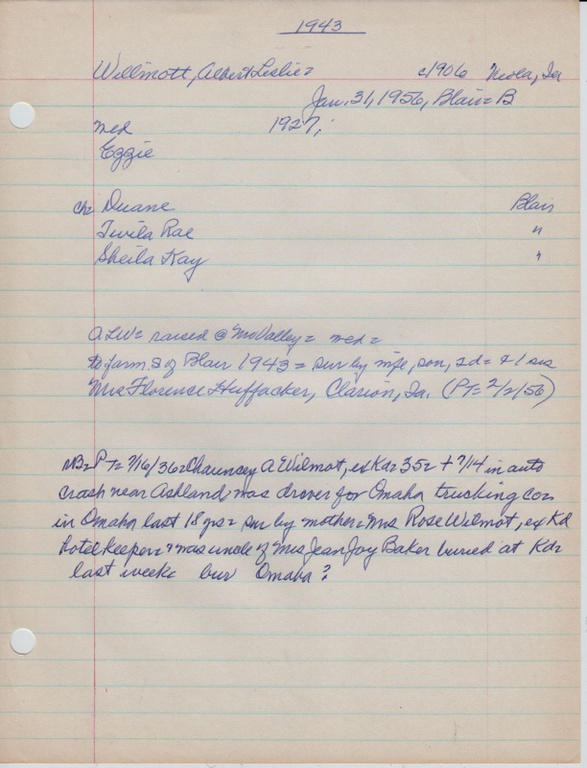 1943
Willmott, Albert Leslie= c1906 Neola, Ia
Jan. 31, 1956, Blair= B
med 1927;
Eggie
ch= Duane Blair
Twila Rae "
Sheila Kay "
ALW= raised @ MoValley= med=
to farm S of Blair 1943= sur by wife, son, 2d= & 1 sis
Mrs Florence Huffacker, Clarion, Ia. (PT= 2/2/56)
NB= PT= 7/16/36= Chauncey A Wilmot, ex Kd= 35= + 7/14 in auto
crash near Ashland, was driver for Omaha trucking co=
in Omaha last 18 yrs= sur by mother= Mrs Rose Wilmot, ex Kd
hotel keeper= & was uncle of Mrs Jean Joy Baker buried at Kd=
last week= bur Omaha?